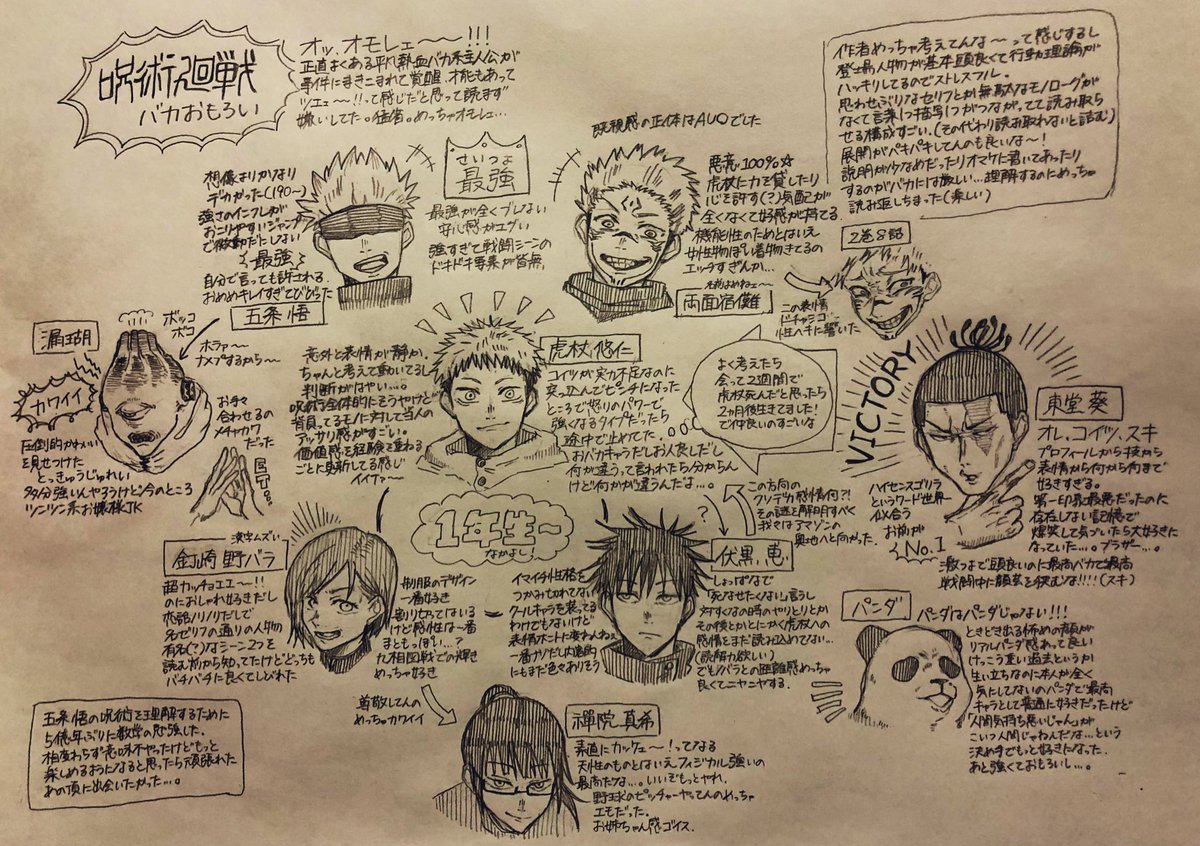 呪術廻戦
バカおもろい
オッ、オモレェ〜〜!!!
正直よくある平凡熱血バカ系主人公が
事件にまきこまれて覚醒、才能もあって
ツエェ〜!!って感じだと思って読まず
嫌いしてた。猛省。めっちゃオモレェ…
作者めっちゃ考えてんな〜って感じするし
登場人物が基本頭良くて行動理論が
ハッキリしてるのでストレスフル。
思わせぶりなセリフとか無駄なモノローグが
なくて言葉1つ描写1つがつながってて読み取ら
せる構成すごい。(その代わり読み取れないと詰む)
展開がパキパキしてんのも良いな〜!
説明が少なめだったりオマケに書いてあったり
するのがバカには厳しい…理解するのにめっちゃ
読み返しちまった(楽しい)
想像よりかなり
デカかった(190〜)
強さのインフレが
おこりやすいジャンプ
で微動だにしない
最強
自分で言っても許される
おめめキレイすぎてびびった
五条 悟
さいつよ
最強
最強が全くブレない
安心感がエグい
強すぎて戦闘シーンの
ドキドキ要素が皆無。
既視感の正体はAUOでした
悪意100%☆
虎杖に力を貸したり
心を許す(?)気配が
全くなくて好感が持てる
機能性のためとはいえ
女性物ぽい着物きてるの
エッチすぎんか…
名前よめねェ〜
両面宿儺
2巻8話
この表情
ドチャシコ
性ヘキに響いた
漏瑚
カワイイ
ボッコ
ボコ
ホラァ〜
ナメプするから〜
お手々
合わせるの
メチャカワ
だった
圧倒的かわいい
を見せつけた
とっきゅうじゅれい
多分強いんやろうけど今のところ
ツンツン系お嬢様JK
意外と表情が静か。
ちゃんと考えて動いてるし
判断がはやい…。
呪術師全体的にそうやけど
背負ってるモノに対して当人の
アッサリ感がすごい。
価値感を経験を重ねる
ごとに更新してる感じ
イイナァ〜
虎杖 悠仁
コイツが実力不足なのに
突っ込んでピンチになった
ところで怒りのパワーで
強くなるタイプだったら
途中で止めてた。
おバカキャラだしお人良しだし
何が違うって言われたら分からん
けど何かが違うんだよな…。
よく考えたら
会って2週間で
虎杖死んだと思ったら
2ヵ月後生きてました!
で仲良いのすごいな
VICTORY
東堂 葵
オレ、コイツ、スキ
プロフィールから技から
表情から何から何まで
好きすぎる。
第一印象最悪だったのに
存在しない記憶で
爆笑して気づいたら大好きに
なっていた…。ブラザー…。
ハイセンスゴリラ
というワード世界一
似合う
お前が
No.1
激つよで頭良いのに最高バカで最高
戦闘中に顔芸を挟むな!!!!(スキ)
1年生〜
なかよし!
漢字ムズい
釘崎 野バラ
超カッチョエエ〜!!
のにおしゃれ好きだし
恋話ノリノリだしで
名ゼリフの通りの人物
有名(?)なシーン2つを
読む前から知ってたけどどっちも
バチバチに良くてしびれた
制服のデザイン
一番好き
割り切ってはいる
けど感性は一番
まともっぽい…?
九相図戦での輝き
めっちゃ好き
イマイチ性格を
つかみ切れてない
クールキャラを装ってる
わけでもないけど
表情ホントに変わんねェ
一番ナゾだし内面的
にもまだ色々ありそう
?
伏黒 恵
この方向の
クソデカ感情何?!
その謎を解明すべく
我々はアマゾンの
奥地へと向かった。
しょっぱなで
「死なせたくない」言うし
対すくなの時のやりとりとか
その後とかとにかく虎杖への
感情をまだ読み込めてない…
(読解力欲しい)
でもノバラとの距離感めっちゃ
良くてニヤニヤする。
パンダ
パンダはパンダじゃない!!!
ときどき出る怖めの顔が
リアルパンダ感あって良い
けっこう重い過去というか
生い立ちなのに本人が全く
気にしてないのパンダで最高
キャラとして普通に好きだったけど
「人間気持ち悪いじゃん」が
こいつ人間じゃねんだな…という
決め手でもっと好きになった。
あと強くておもろいし…。
尊敬してんの
めっちゃカワイイ
禪院 真希
素直にカッケェ〜!ってなる
天性のものとはいえフィジカル強いの
最高だな…。いいぞもっとやれ。
野球のピッチャーやってんのめっちゃ
エモだった。
お姉ちゃん感ゴイス。
五条悟の呪術を理解するために
5億年ぶりに数学の勉強した。
相変わらず意味不やったけどもっと
楽しめるようになると思ったら頑張れた
あの頃に出会いたかった…。